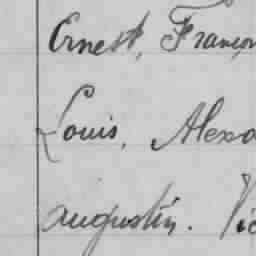 Ernest, Françoi
Louis, Alexa
augustin. Vic